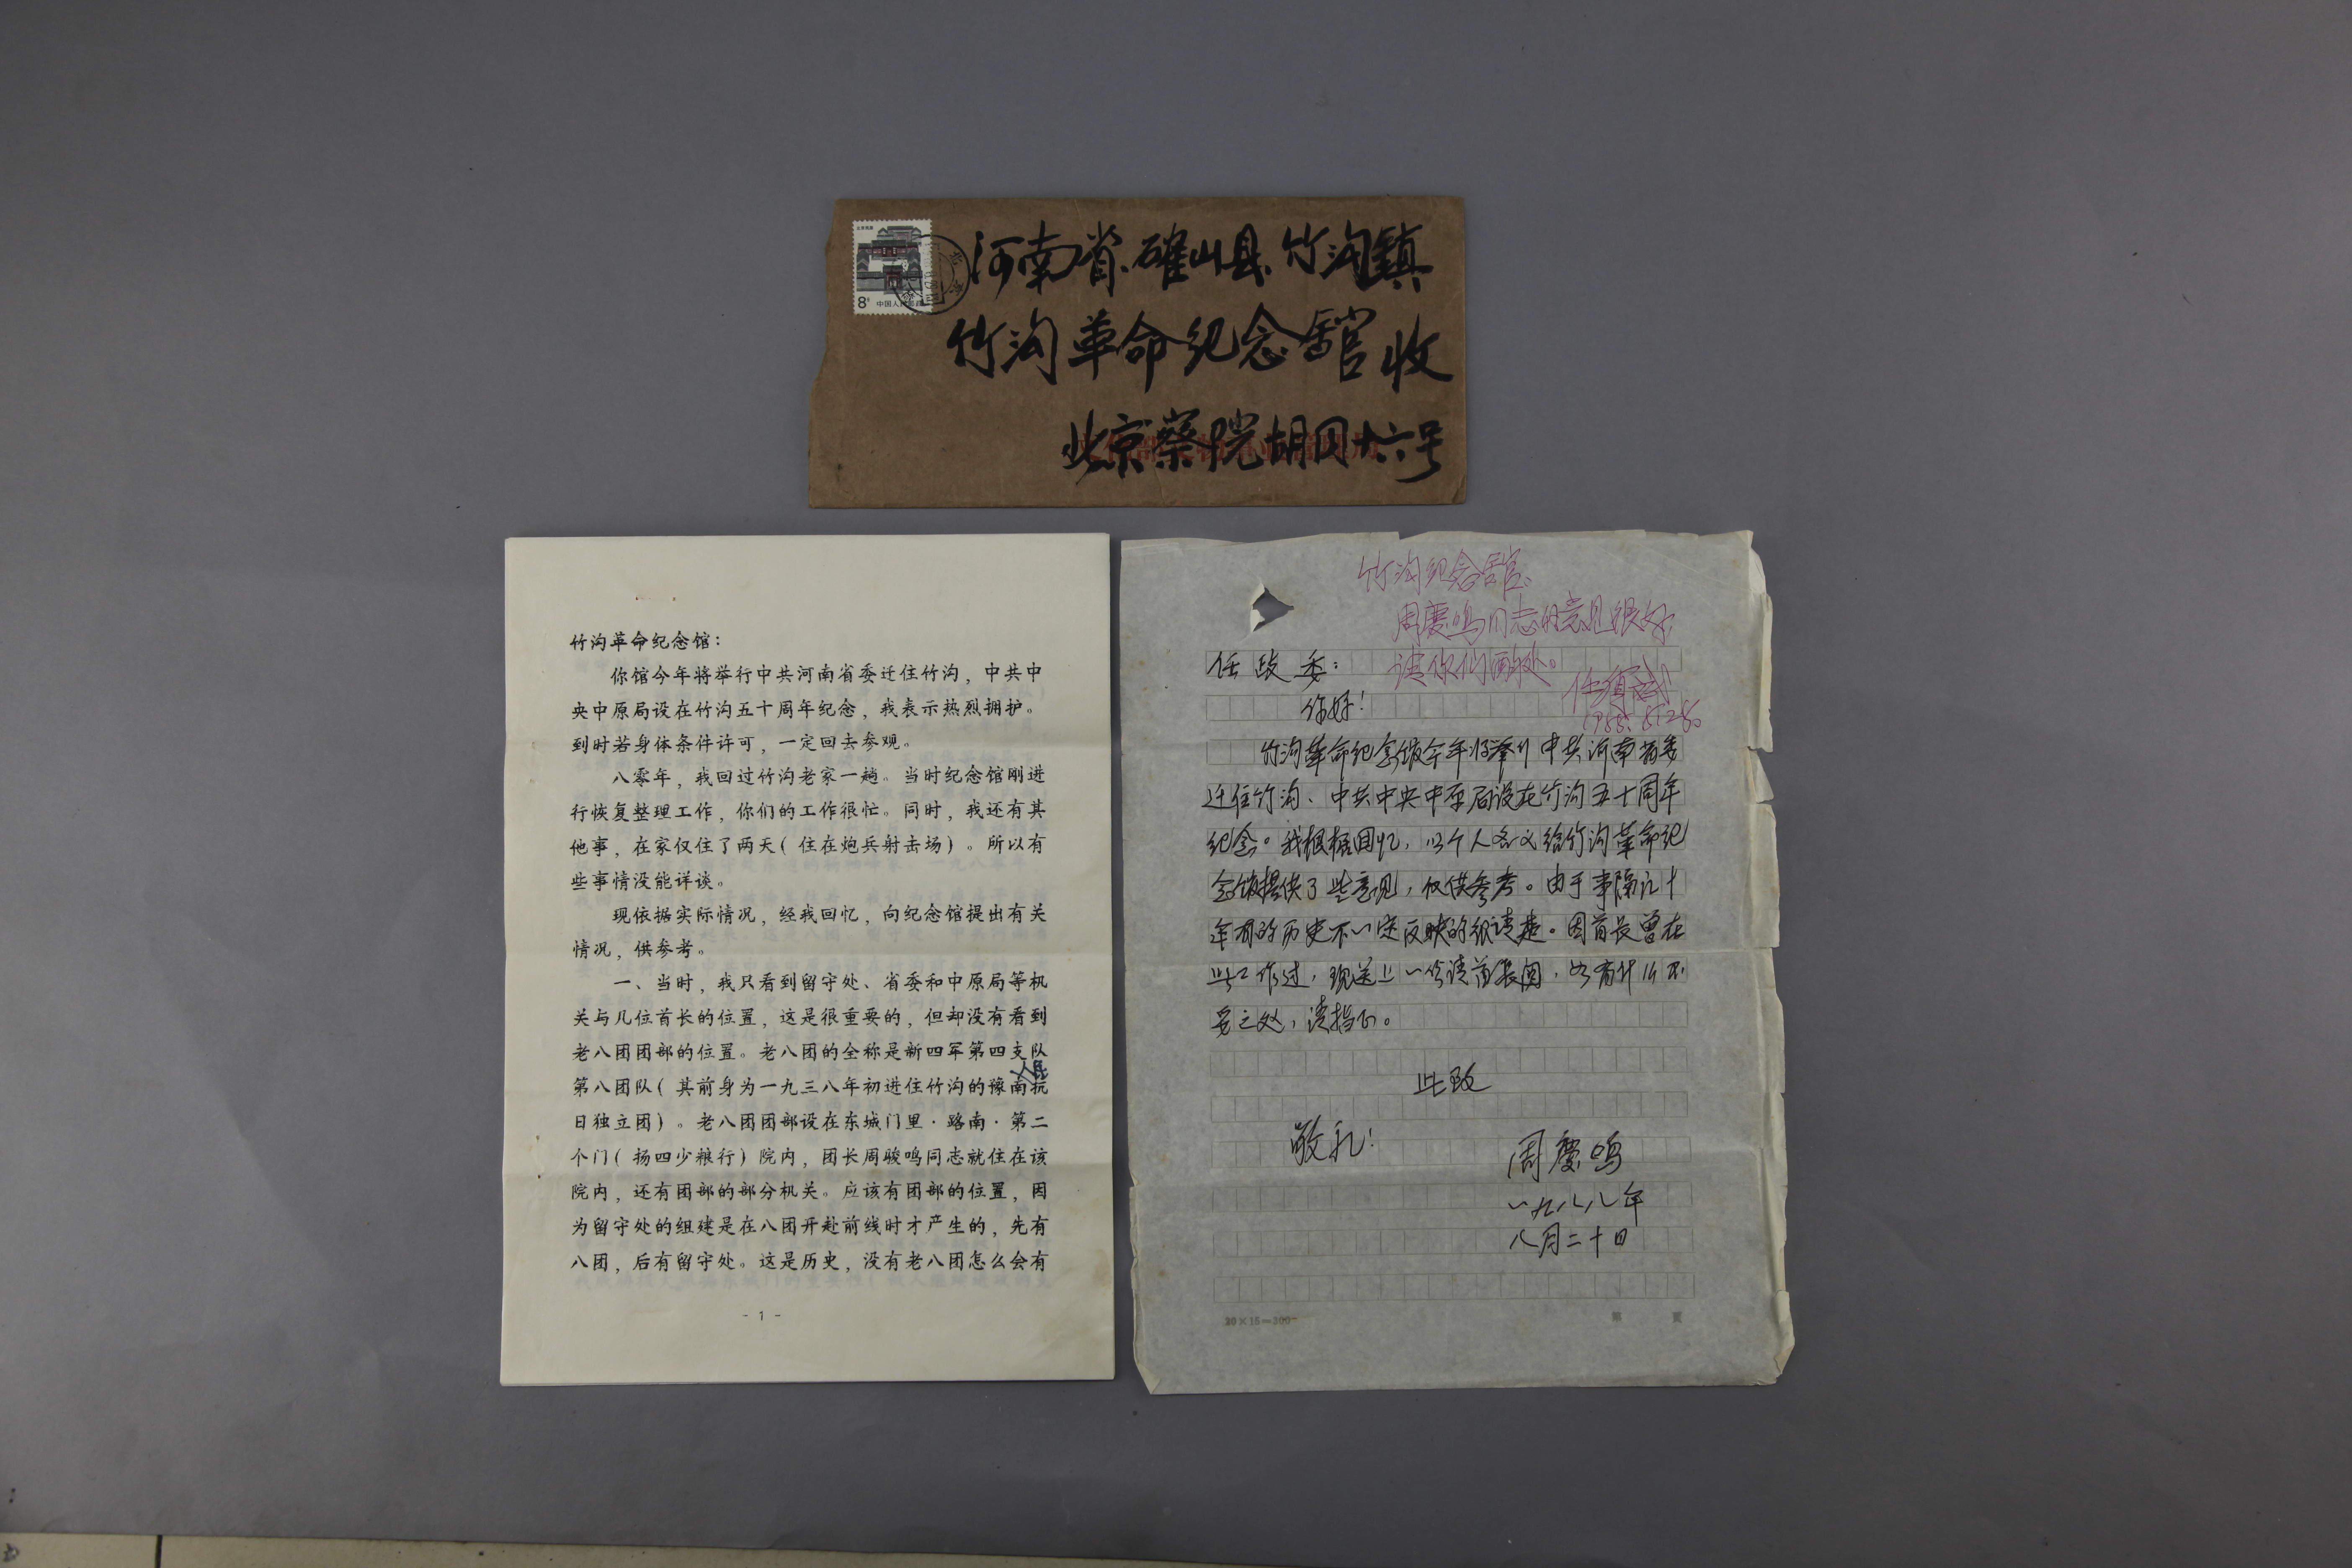 北京民居
8分 中国人民邮政
河南省确山县竹沟镇
竹沟革命纪念馆收
北京蔡院胡同十六号
竹沟革命纪念馆：
你馆今年将举行中共河南省委迁住竹沟，中共中
央中原局设在竹沟五十周年纪念，我表示热烈拥护。
到时若身体条件许可，一定回去参观。
八零年，我回过竹沟老家一趟。当时纪念馆刚进
行恢复整理工作，你们的工作很忙。同时，我还有其
他事，在家仅住了两天（住在炮兵射击场）。所以有
些事情没能详谈。
现依据实际情况，经我回忆，向纪念馆提出有关
情况，供参考。
一、当时，我只看到留守处、省委和中原局等机
关与几位首长的位置，这是很重要的，但却没有看到
老八团团部的位置。老八团的全称是新四军第四支队
第八团队（其前身为一九三八年初进住竹沟的豫南抗
日独立团）。老八团团部设在东城门里·路南·第二
个门（扬四少粮行）院内，团长周骏鸣同志就住在该
院内，还有团部的部分机关。应该有团部的位置，因
为留守处的组建是在八团开赴前线时才产生的，先有
八团，后有留守处。这是历史，没有老八团怎么会有
- 1 -
竹沟纪念馆：
周庆鸣同志的意见很好，
请你们酌处。
任质斌
任政委：
你好！
竹沟革命纪念馆今年将举行中共河南省委
迁住竹沟、中共中央中原局设在竹沟五十周年
纪念。我根据回忆，以个人名义给竹沟革命纪
念馆提供了些意见，仅供参考。由于事隔几十
年有的历史不一定反映的很清楚。因首长曾在
此工作过，现送上一份请首长阅，如有什么不
妥之处，请指正。
此致
敬礼！
周庆鸣
一九八八年
八月二十日
20×15=300
第 页